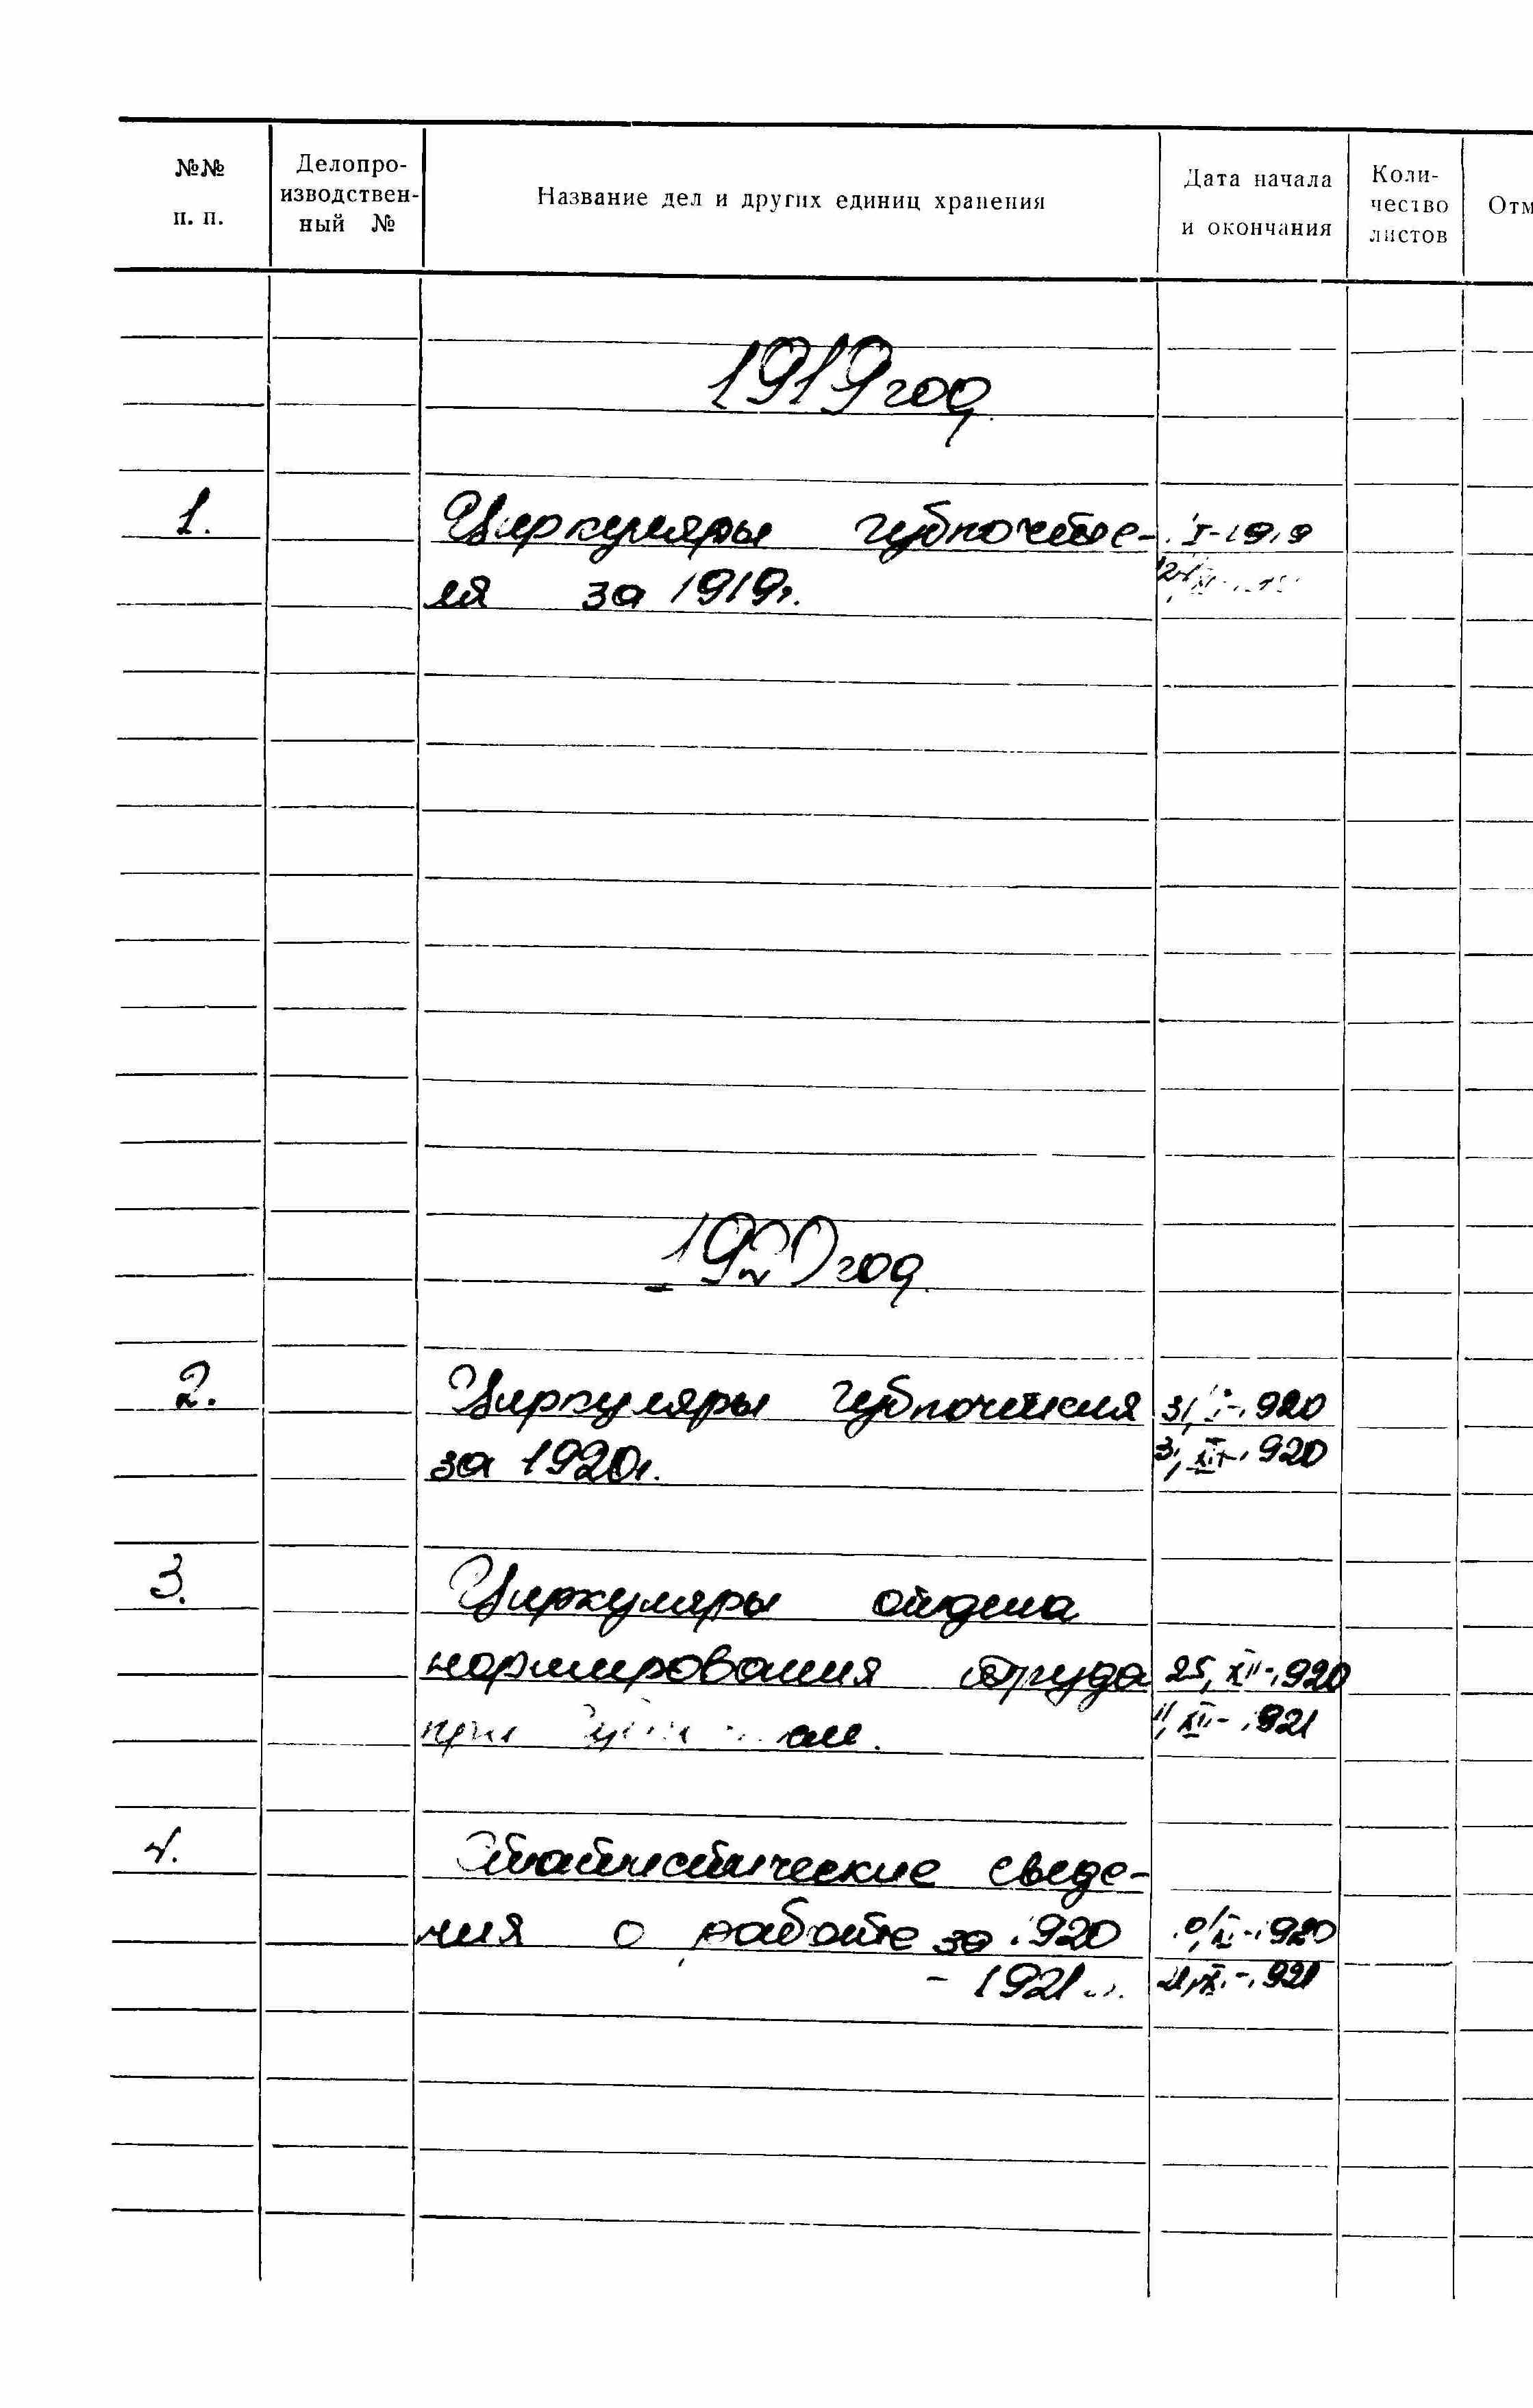 №№ п. п.
Делопро-
изводствен-
ный №
Название дел и других единиц хранения
Дата начала
и окончания
Коли-
чество
листов
Отм
1919 год
1. Циркуляры губпочте- I-1919
ля за 1919г.
1920 год.
2. Циркуляры губпочтеля 31, I-1920
за 1920г. 31, XII-1920
3. Циркуляры отдела
нормирования труда 25, XII-1920
при 11, XII-1921
4. Статистические сведе-
ния о работе за 1920
-1921 21, XI-1921